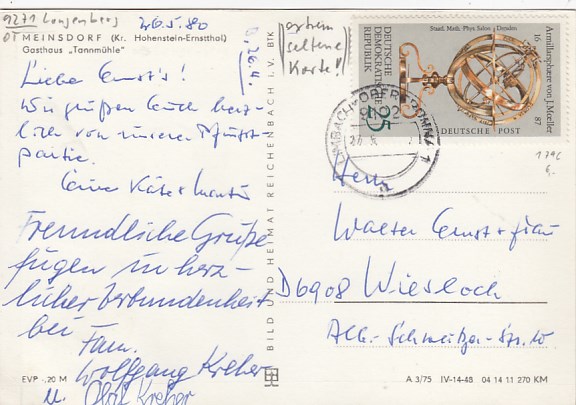 9271 Langenberg
26.5.80
OT MEINSDORF (Kr. Hohenstein-Ernstthal)
Gasthaus „Tannmühle"
extrem
seltene
Karte!!
Liebe Ernst's!
Wir grüßen Euch herz-
lich von unserer Pfingst-
partie.
Eure Käte + Mantn
Freundliche Grüße
fügen in herz-
licher Verbundenheit
bei
Fam.
Wolfgang Kreher
u. Kreher
EVP -,20 M
BILD UND HEIMAT REICHENBACH I. V. BTK
Staatl. Math. Phys. Salon · Dresden
Armillarsphäre von J. Moeller
16 87
DEUTSCHE
DEMOKRATISCHE
REPUBLIK
25
DEUTSCHE POST
LIMBACH-OBERFROHNA 1
Herrn
Walter Ernst + Frau
D6908 Wiesloch
Alb.-Schweitzer-Str. 10
A 3/75 IV-14-48 04 14 11 270 KM